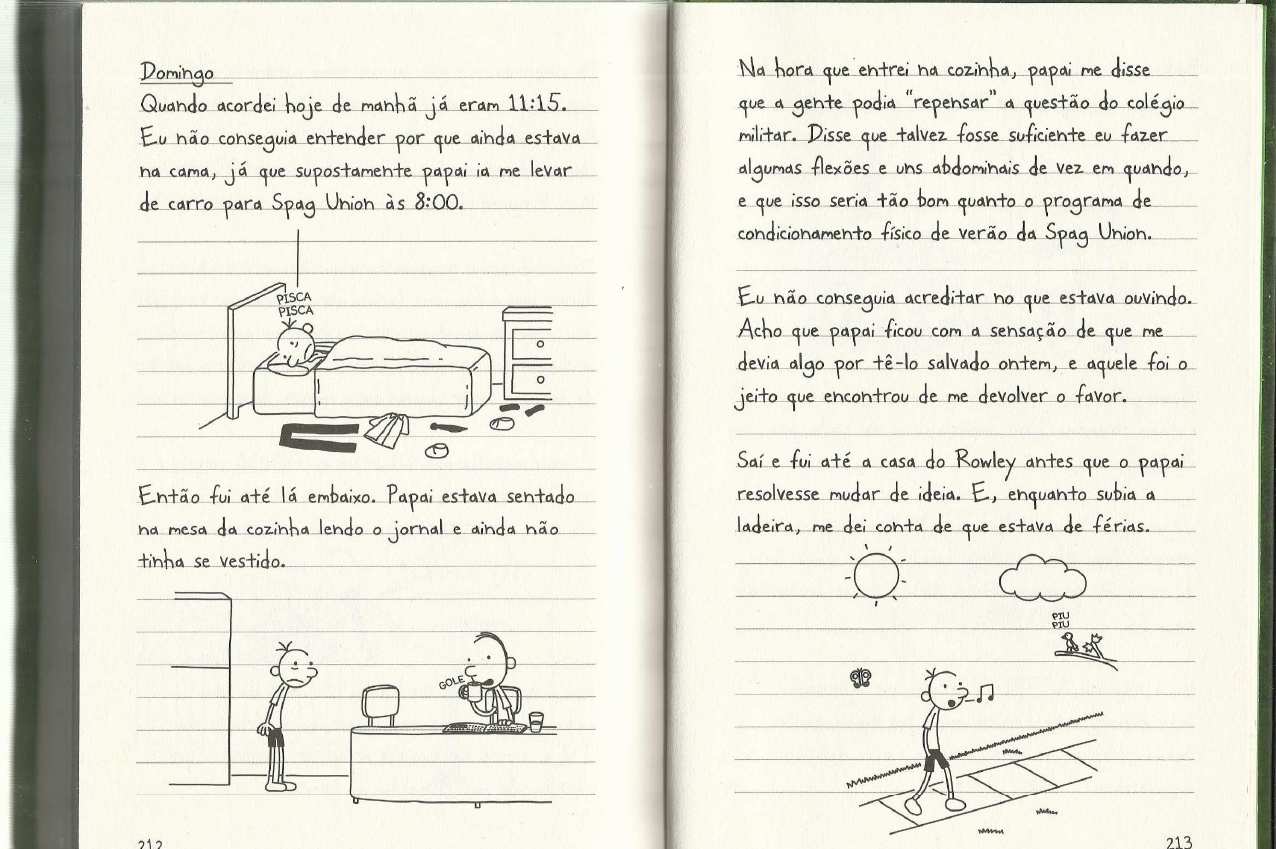 Domingo
Quando acordei hoje de manhã já eram 11:15.
Eu não conseguia entender por que ainda estava
na cama, já que supostamente papai ia me levar
de carro para Spag Union às 8:00.
PISCA
PISCA
Então fui até lá embaixo. Papai estava sentado
na mesa da cozinha lendo o jornal e ainda não
tinha se vestido.
GOLE
212
Na hora que entrei na cozinha, papai me disse
que a gente podia "repensar" a questão do colégio
militar. Disse que talvez fosse suficiente eu fazer
algumas flexões e uns abdominais de vez em quando,
e que isso seria tão bom quanto o programa de
condicionamento físico de verão da Spag Union.
Eu não conseguia acreditar no que estava ouvindo.
Acho que papai ficou com a sensação de que me
devia algo por tê-lo salvado ontem, e aquele foi o
jeito que encontrou de me devolver o favor.
Saí e fui até a casa do Rowley antes que o papai
resolvesse mudar de ideia. E, enquanto subia a
ladeira, me dei conta de que estava de férias.
PIU
PIU
213